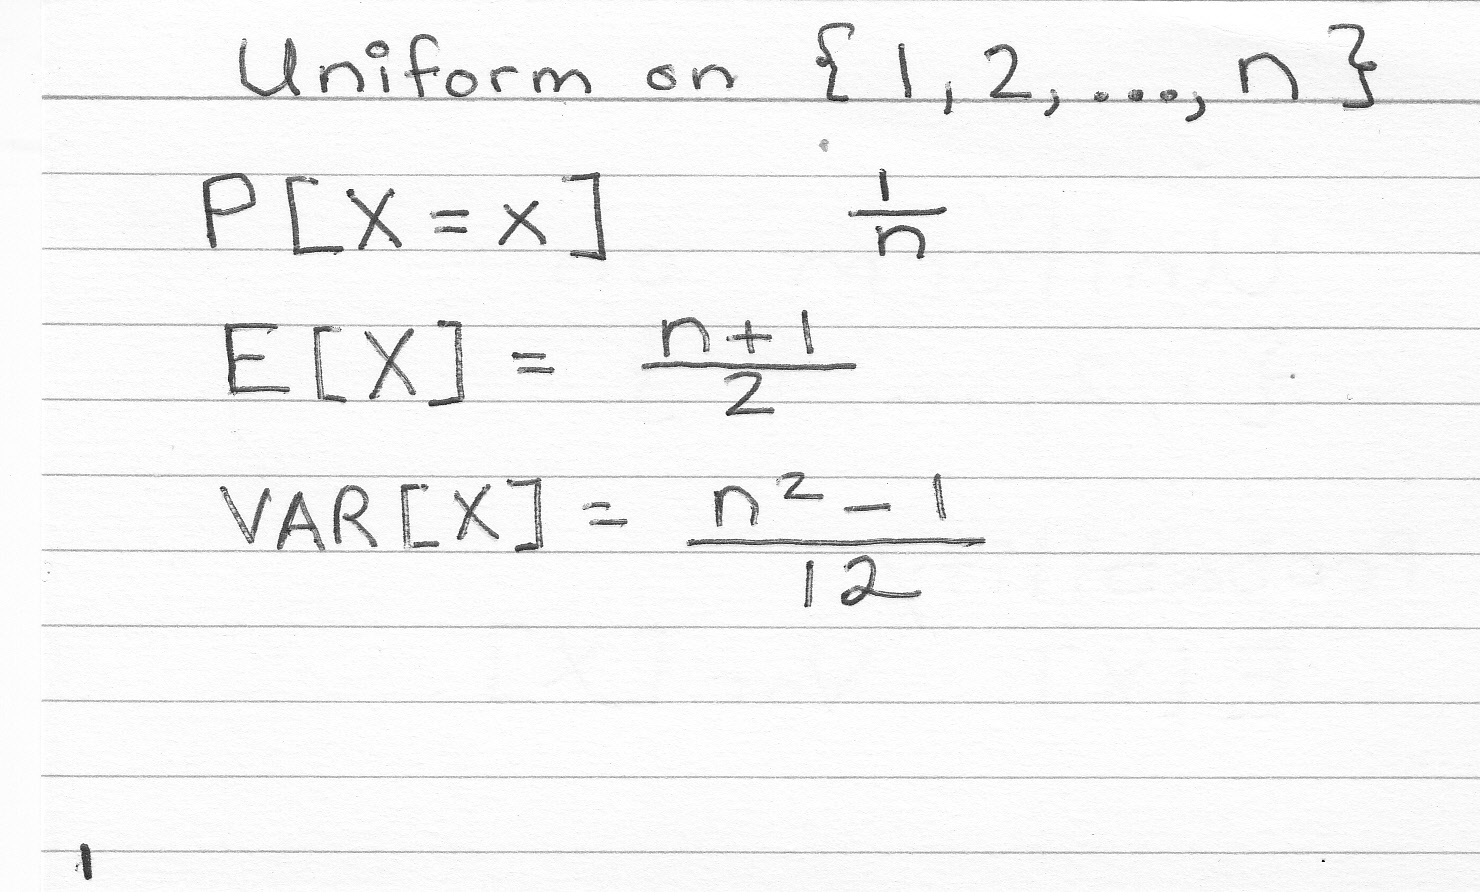 Uniform on {1, 2, ..., n}
P[X = x] 1/n
E[X] = n+1/2
VAR[X] = n²-1/12
1